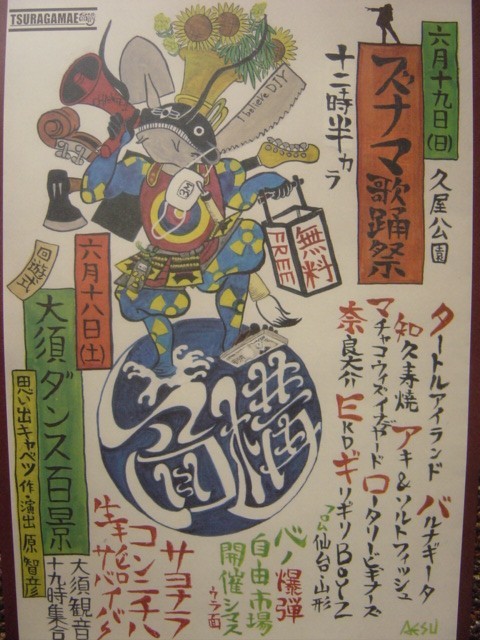 TSURAGAMAE
六月十九日(日)
久屋公園
ズナマ歌踊祭
十二時半カラ
I believe DIY
無料
FREE
タートルアイランド
バルナギータ
知久寿焼
アキ&ソルトフィッシュ
マチャコウィズイズヤード
ロータリービギナーズ
奈良大介
EKD
ギリギリBOYZ
フロム仙台・山形
回遊式
六月十八日(土)
大須ダンス百景
思い出キャベツ
作・演出 原智彦
大須観音
十九時集合
心ノ爆弾
自由市場
開催シマス
ウラ面
サヨナラ
コンニチハ
生キロ
サバイバル
AKSU